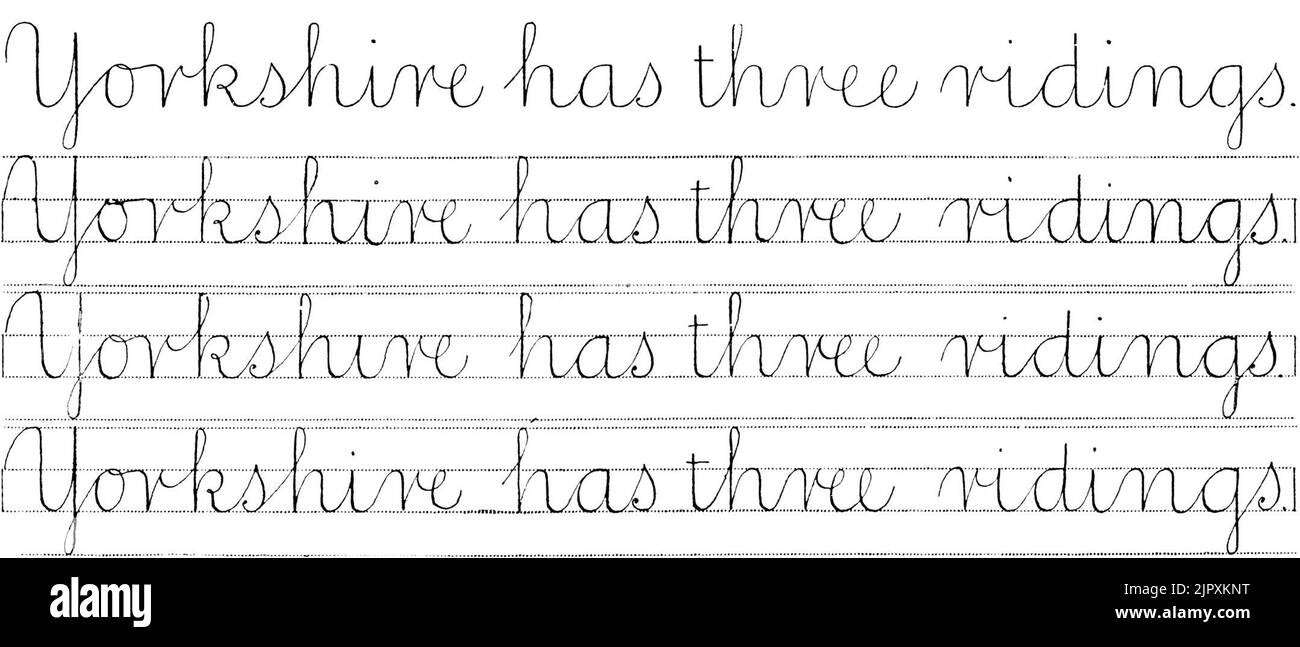 Yorkshire has three ridings.
Yorkshire has three ridings.
Yorkshire has three ridings.
Yorkshire has three ridings.
alamy
Image ID: 2JPXKNT
www.alamy.com